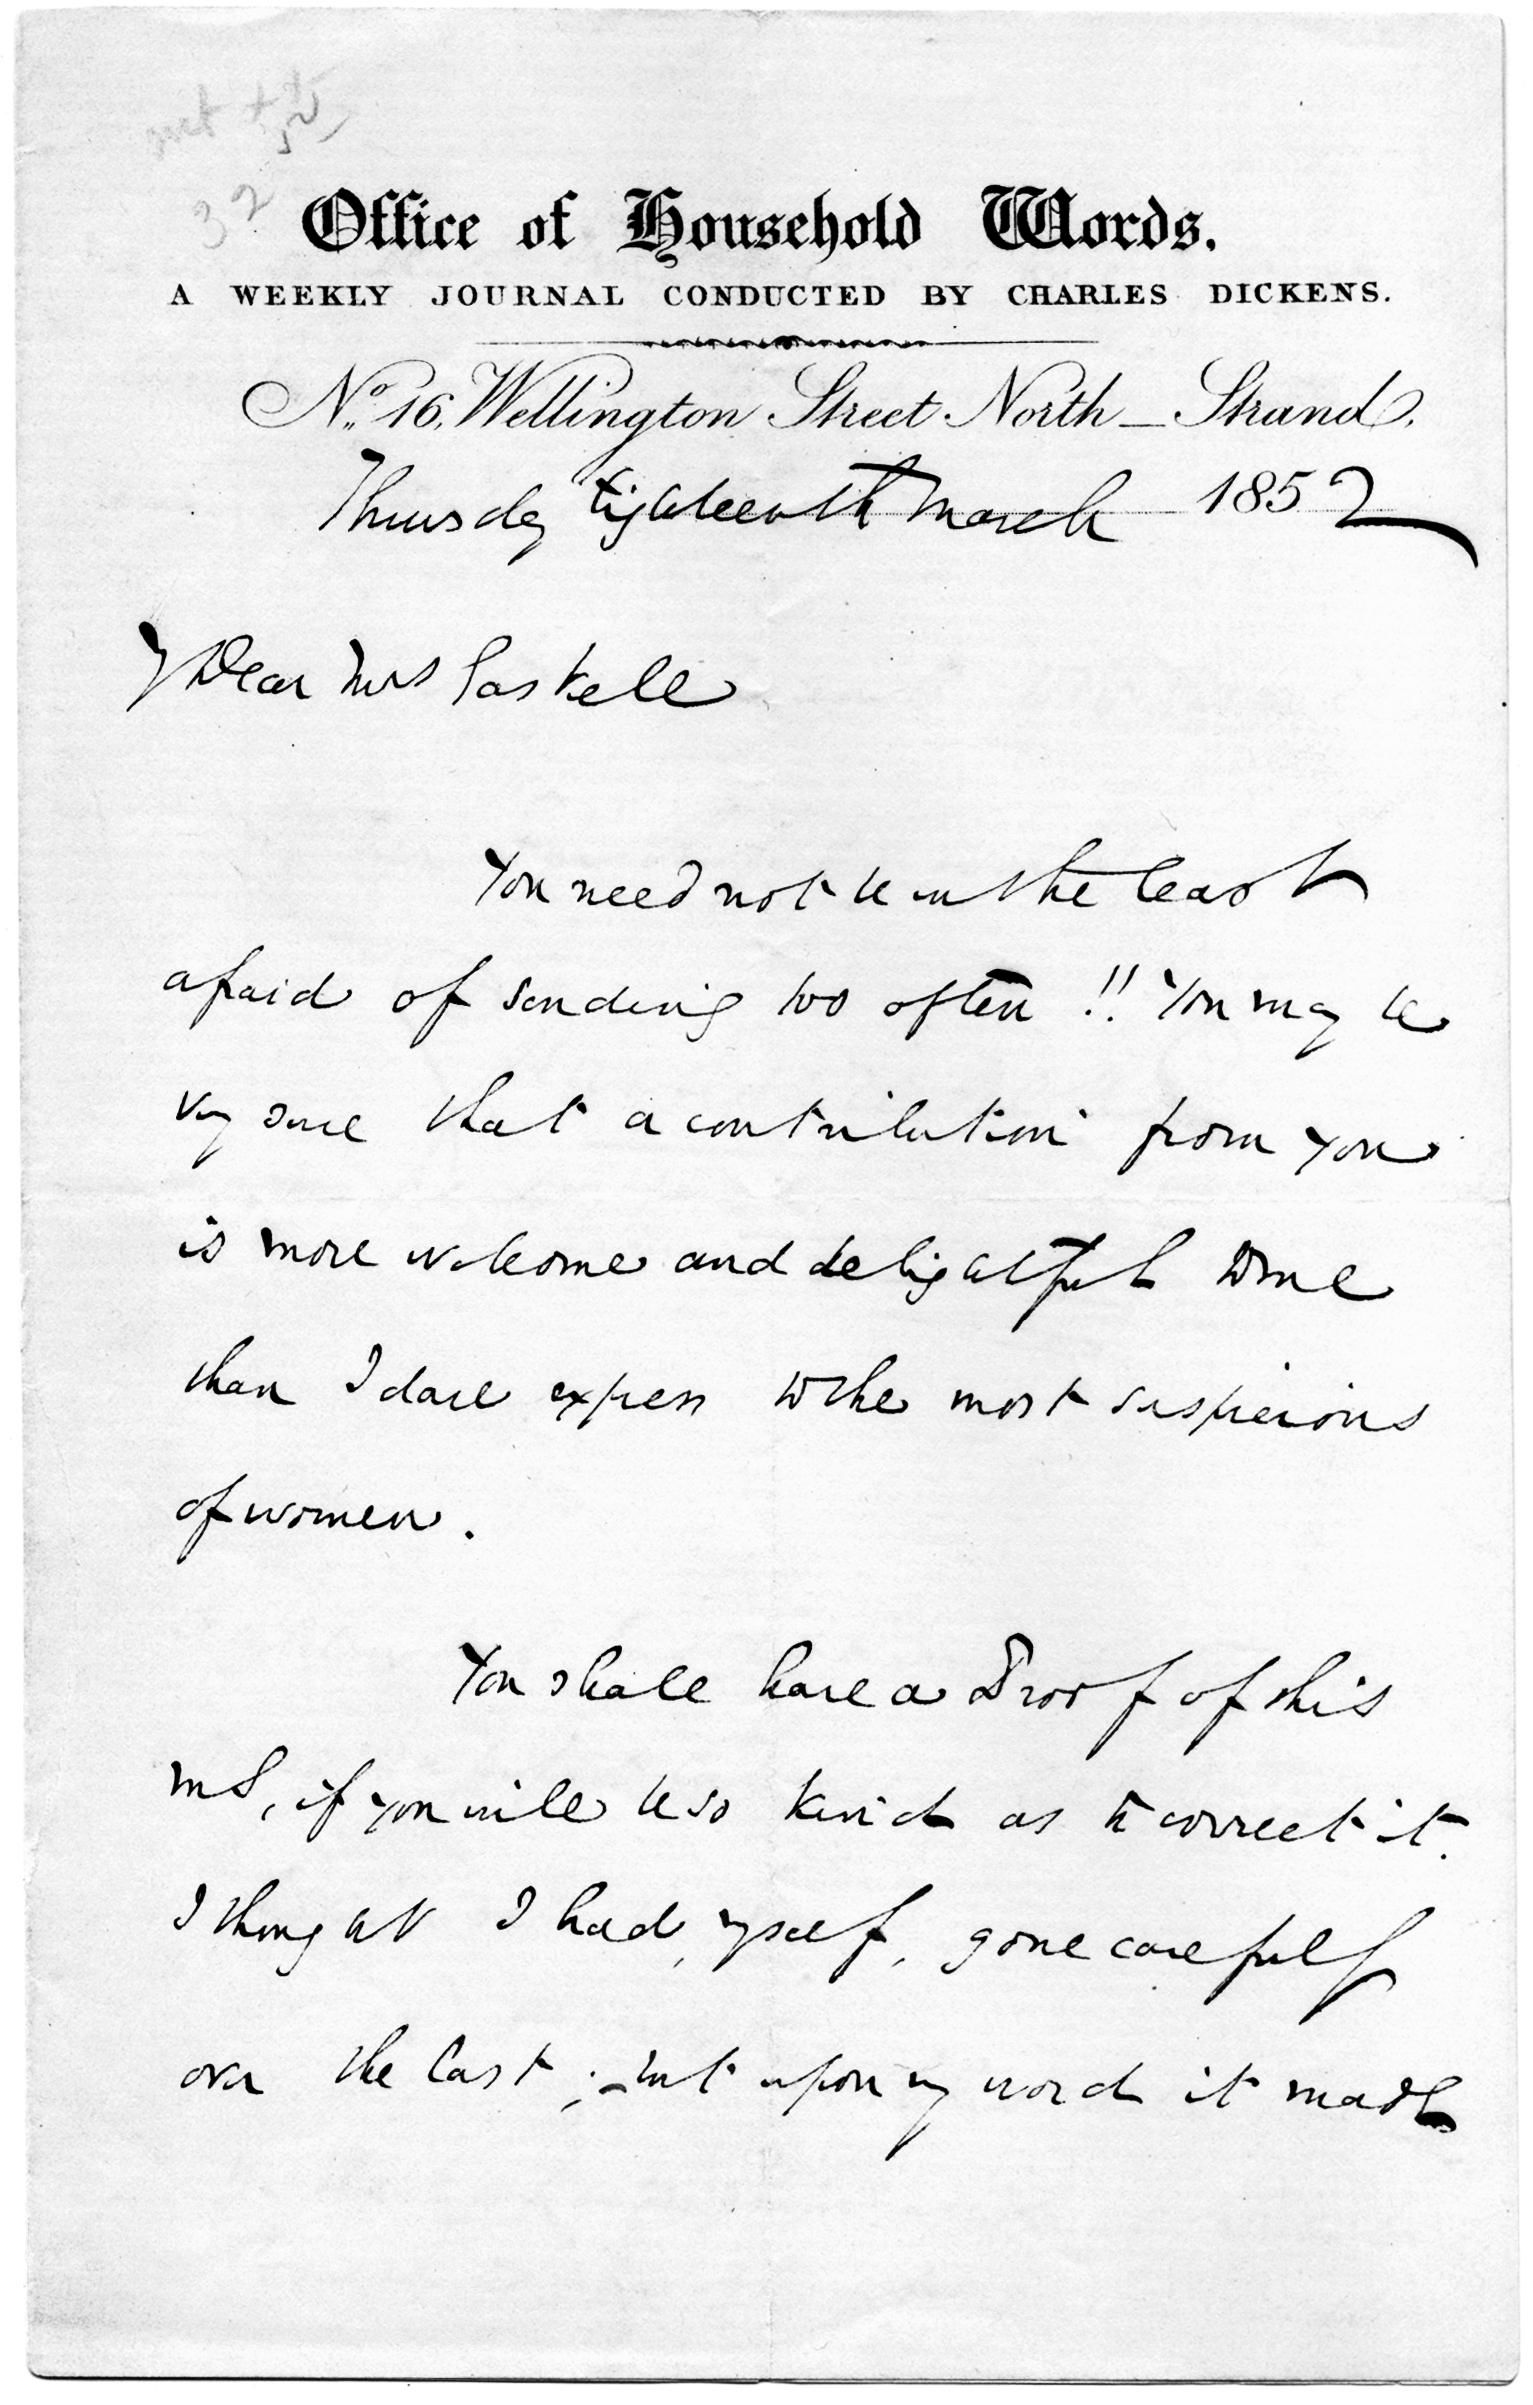 32
Office of Household Words.
A WEEKLY JOURNAL CONDUCTED BY CHARLES DICKENS.
No. 16, Wellington Street North — Strand.
Thursday Eighteenth March 1852
My Dear Mrs Gaskell
You need not be in the least
afraid of sending too often!! You may be
very sure that a contribution from you
is more welcome and delightful to me
than I dare express to the most suspicious
of women.
You shall have a Proof of this
MS, if you will be so kind as to correct it.
I thought I had, myself, gone carefully
over the last; – but upon my word it made